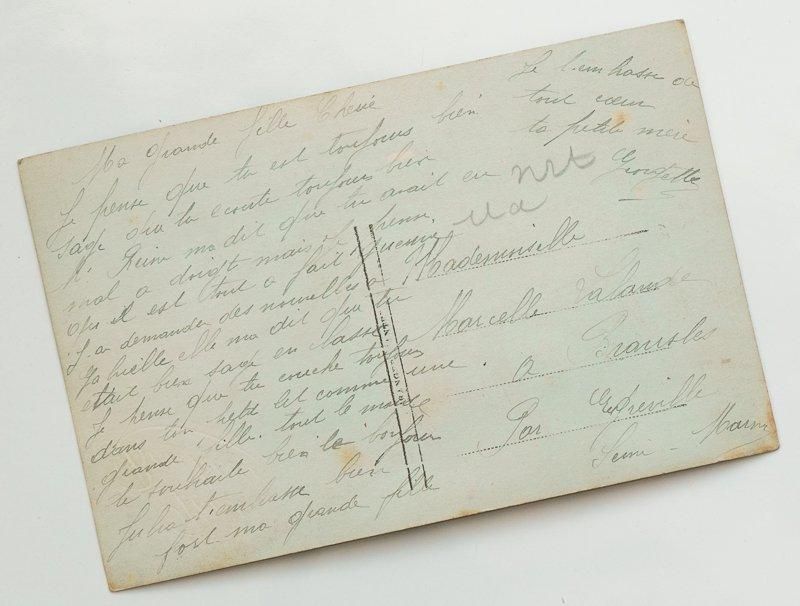 Ma grande fille Cherie
Je pense que tu est toujours bien
sage que tu ecoute toujours bien
Reine ma dit que tu avait eu
mal a doigt mais je pense
que il est tout a fait
J'ai demander des nouvelles a
elle ma dit que tu
etait bien sage en classe
Je pense que tu couche toujours
dans ton petit lit comme une
grande fille. tout le monde
te souhaite bien le bonjour
Julia t'embrasse bien
fort ma grande fille
Je t'embrasse de
tout cœur
ta petite mere
Georgette
Mademoiselle
Marcelle Lalande
a
Par Egreville
Seine - Marne